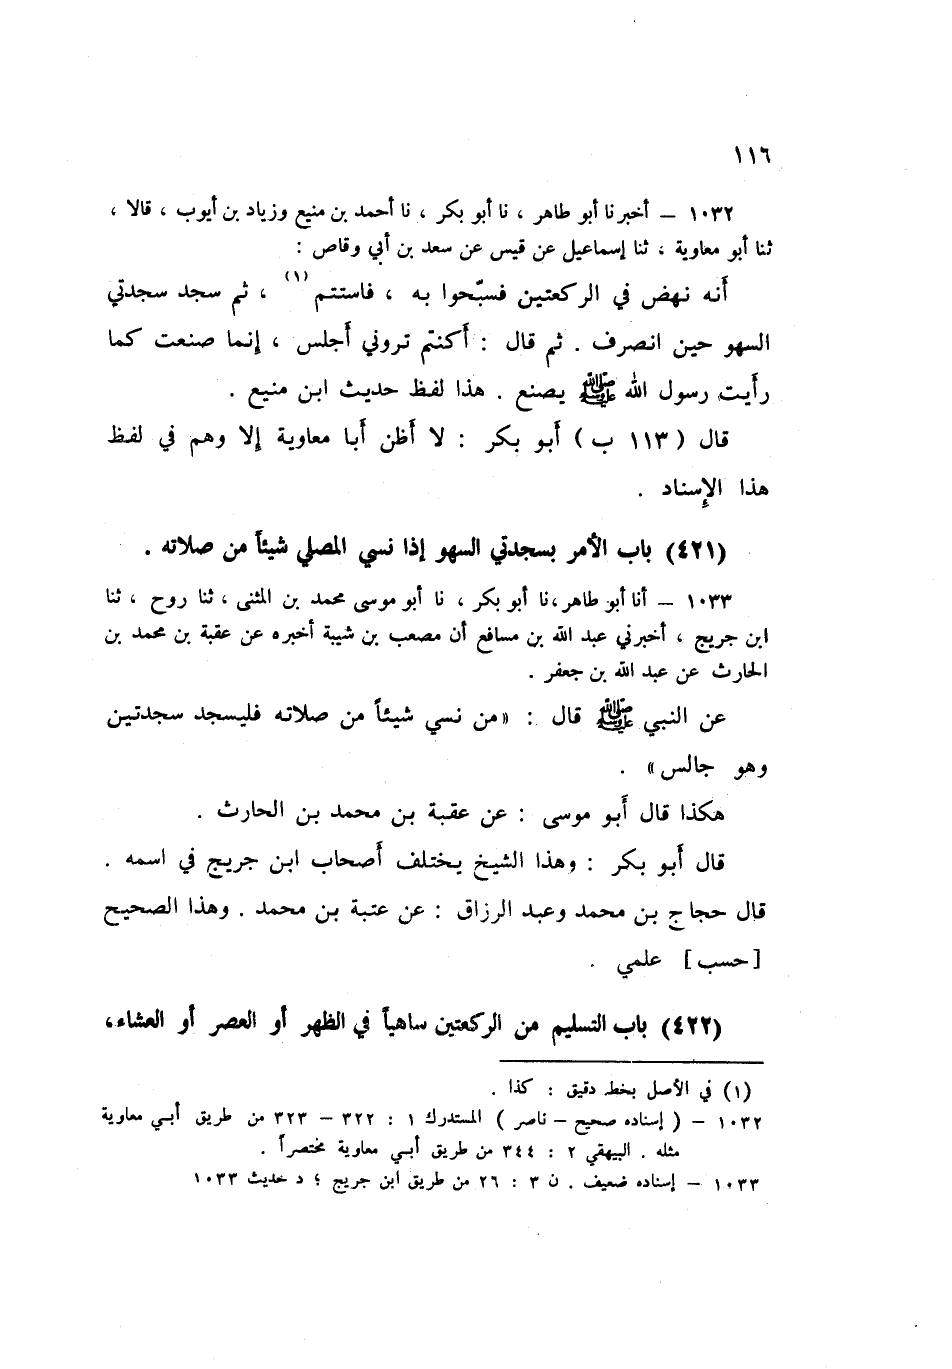 ١١٦
١٠٣٢ – أخبرنا أبو طاهر ، نا أبو بكر ، نا أحمد بن منيع وزياد بن أيوب ، قالا ،
ثنا أبو معاوية ، ثنا إسماعيل عن قيس عن سعد بن أبي وقاص :
أنه نهض في الركعتين فسبّحوا به ، فاستتم (١) ، ثم سجد سجدتي
السهو حين انصرف . ثم قال : أكنتم تروني أجلس ، إنما صنعت كما
رأيت رسول الله ﷺ يصنع . هذا لفظ حديث ابن منيع .
قال ( ١١٣ ب ) أبو بكر : لا أظن أبا معاوية إلا وهم في لفظ
هذا الإسناد .
(٤٢١) باب الأمر بسجدتي السهو إذا نسي المصلي شيئاً من صلاته .
١٠٣٣ – أنا أبو طاهر ،نا أبو بكر ، نا أبو موسى محمد بن المثنى ، ثنا روح ، ثنا
ابن جريج ، أخبرني عبد الله بن مسافع أن مصعب بن شيبة أخبره عن عقبة بن محمد بن
الحارث عن عبد الله بن جعفر .
عن النبي ﷺ قال : «من نسي شيئاً من صلاته فليسجد سجدتين
وهو جالس» .
هكذا قال أبو موسى : عن عقبة بن محمد بن الحارث .
قال أبو بكر : وهذا الشيخ يختلف أصحاب ابن جريج في اسمه .
قال حجاج بن محمد وعبد الرزاق : عن عتبة بن محمد . وهذا الصحيح
[حسب] علمي .
(٤٢٢) باب التسليم من الركعتين ساهياً في الظهر أو العصر أو العشاء،
(١) في الأصل بخط دقيق : كذا .
١٠٣٢ – ( إسناده صحيح – ناصر ) المستدرك ١ : ٣٢٢ – ٣٢٣ من طريق أبي معاوية
مثله . البيهقي ٢ : ٣٤٤ من طريق أبي معاوية مختصراً .
١٠٣٣ – إسناده ضعيف . ن ٣ : ٢٦ من طريق ابن جريج ؛ د حديث ١٠٣٣